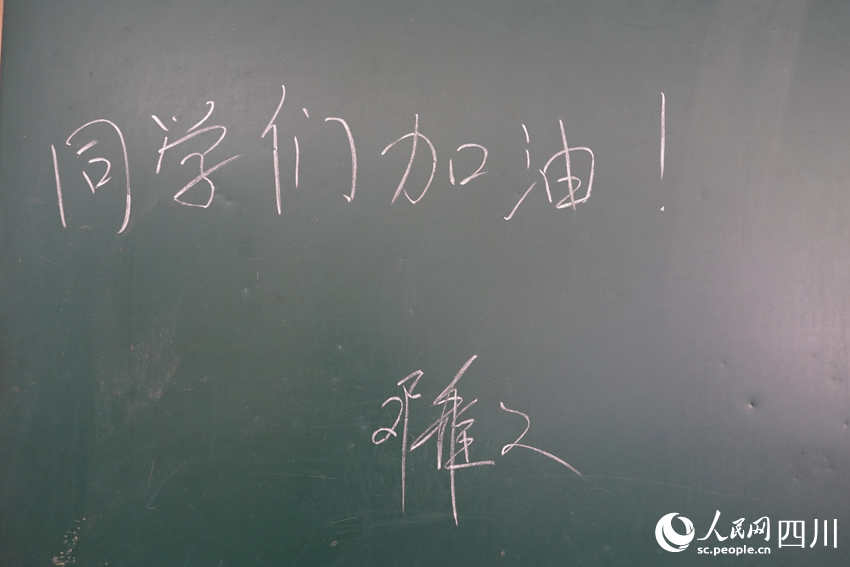 同学们加油！
人民网 四川
sc.people.cn